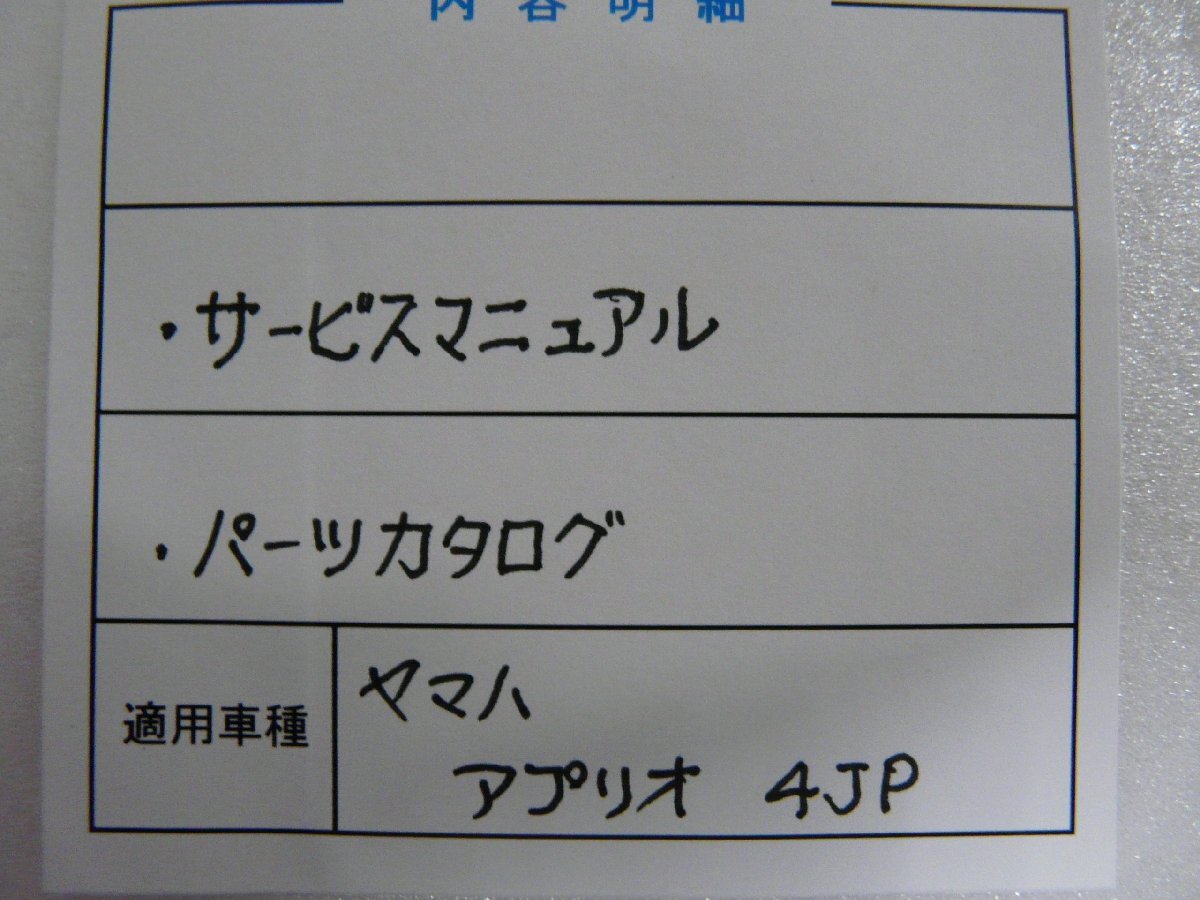 内容明細
・サービスマニュアル
・パーツカタログ
適用車種
ヤマハ
アプリオ 4JP